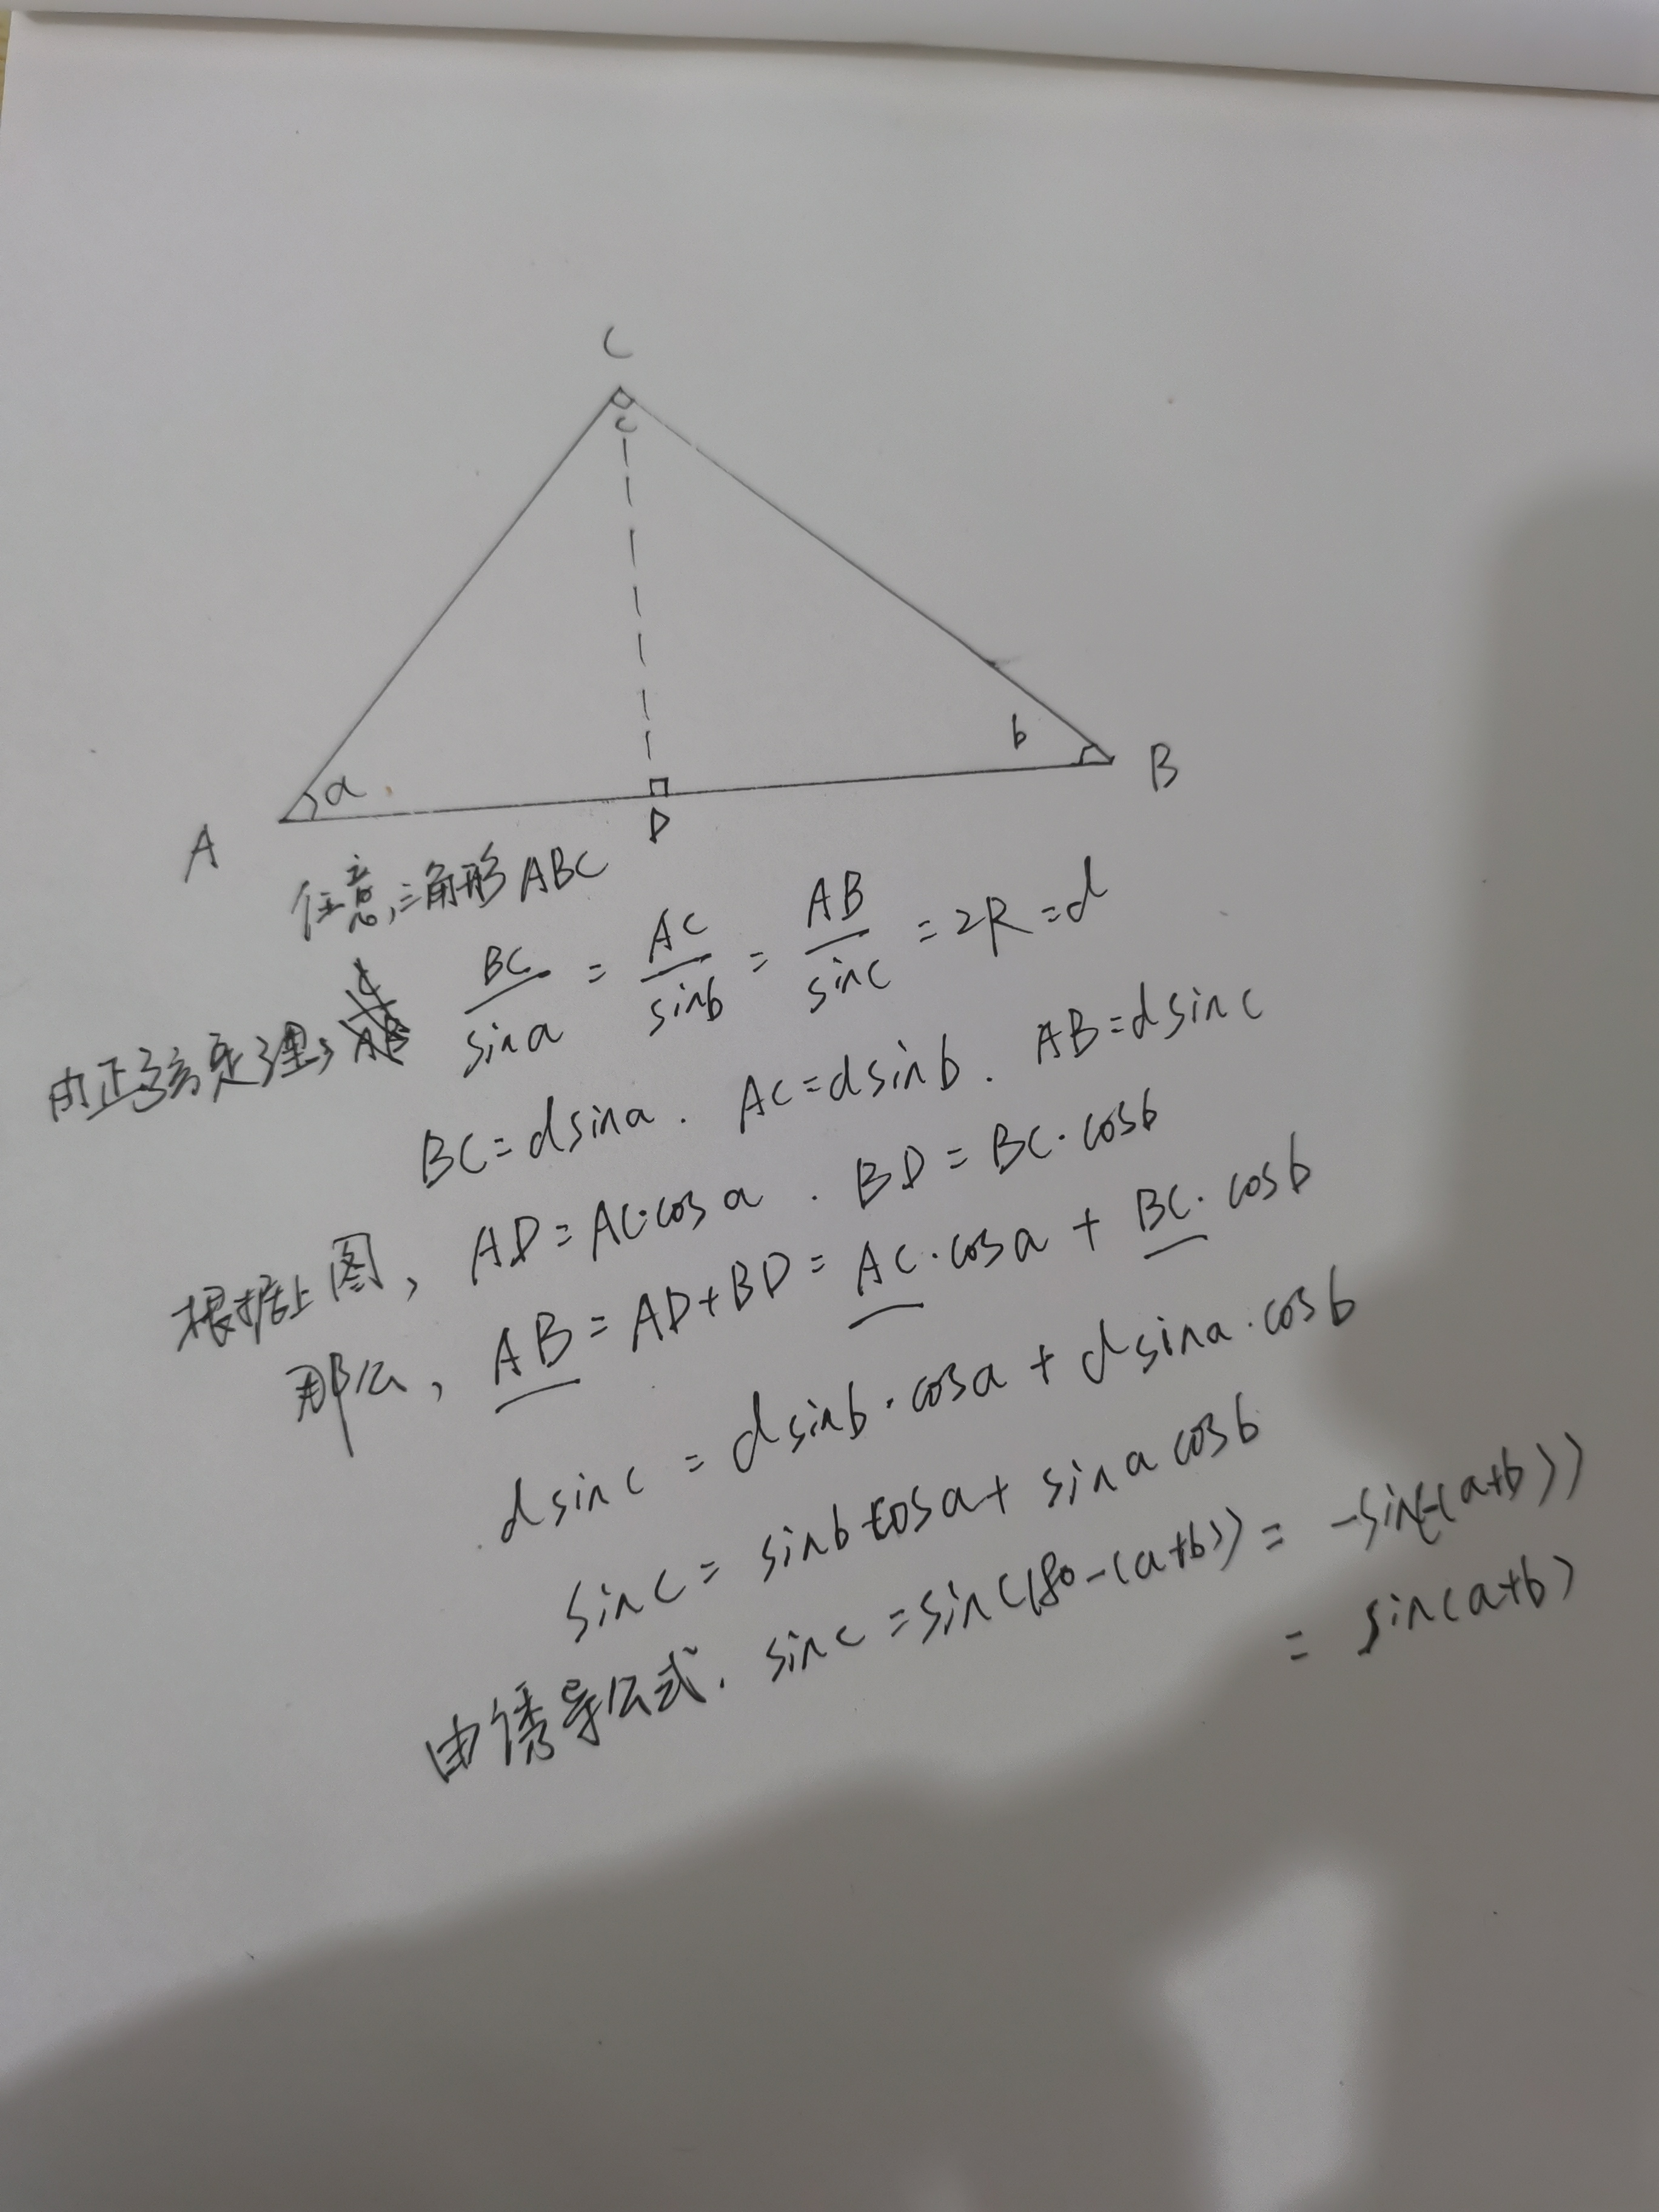 C
c
b
B
a
A
D
任意三角形ABC
由正弦定理, BC/sina = AC/sinb = AB/sinc = 2R = d
BC=dsina. AC=dsinb. AB=dsinc
根据上图, AD=AC·cosa. BD=BC·cosb
那么, AB=AD+BD=AC·cosa+BC·cosb
dsinc=dsinb·cosa+dsina·cosb
sinc=sinbcosa+sinacosb
由诱导公式. sinc=sin(180-(a+b))=-sin(-(a+b))
=sin(a+b)